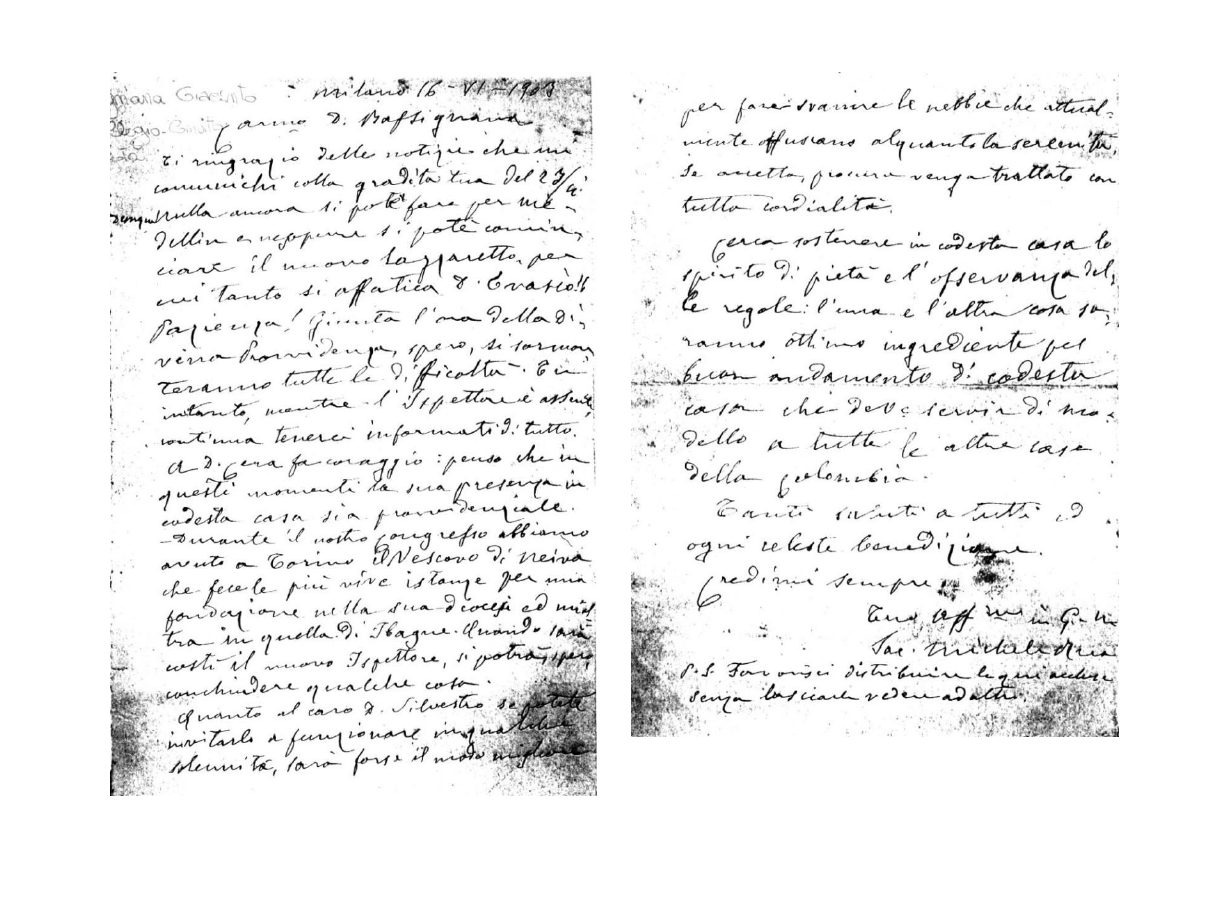 Milano 16-VI-1903
Carmo D. Bassignana
Ti ringrazio delle notizie che mi
comunichi colla gradita tua del 23/4.
Dunque nulla ancora si potè fare per Me-
dellin e neppure si potè comin-
ciare il nuovo Lazzaretto, per
cui tanto si affatica D. Evasio!
Pazienza! Giunta l'ora della Di-
vina Provvidenza, spero, si sormon
teranno tutte le difficoltà. Tu
intanto, mentre l'Ispettore è assente,
continua tenerci informati di tutto.
A D. Cera fa coraggio: penso che in
questi momenti la sua presenza in
codesta casa sia provvidenziale.
-Durante il nostro Congresso abbiamo
avuto a Torino il Vescovo di Neiva
che fece le più vive istanze per una
fondazione nella sua diocesi ed
tra in quella di Ibague. Quando sarà
costì il nuovo Ispettore, si potrà, spero
conchiudere qualche cosa.
Quanto al caro D. Silvestro se potete
invitarlo a funzionare in qualche
solennità, sarà forse il modo migliore
per fare svanire le nebbie che attual-
mente offuscano alquanto la serenità,
se accetta, procura venga trattato con
tutta cordialità.
Cerca sostenere in codesta casa lo
spirito di pietà e l'osservanza del-
le regole: l'una e l'altra cosa sa-
ranno ottimo ingrediente pel
buon andamento di codesta
casa che deve servir di mo-
dello a tutte le altre case
della Colombia.
Tanti saluti a tutti ed
ogni celeste benedizione.
Credimi sempre
Tuo aff.mo in G. M
Sac. Michele Rua
P.S. Favorisci distribuire le qui accluse
senza lasciarle vedere ad altri.